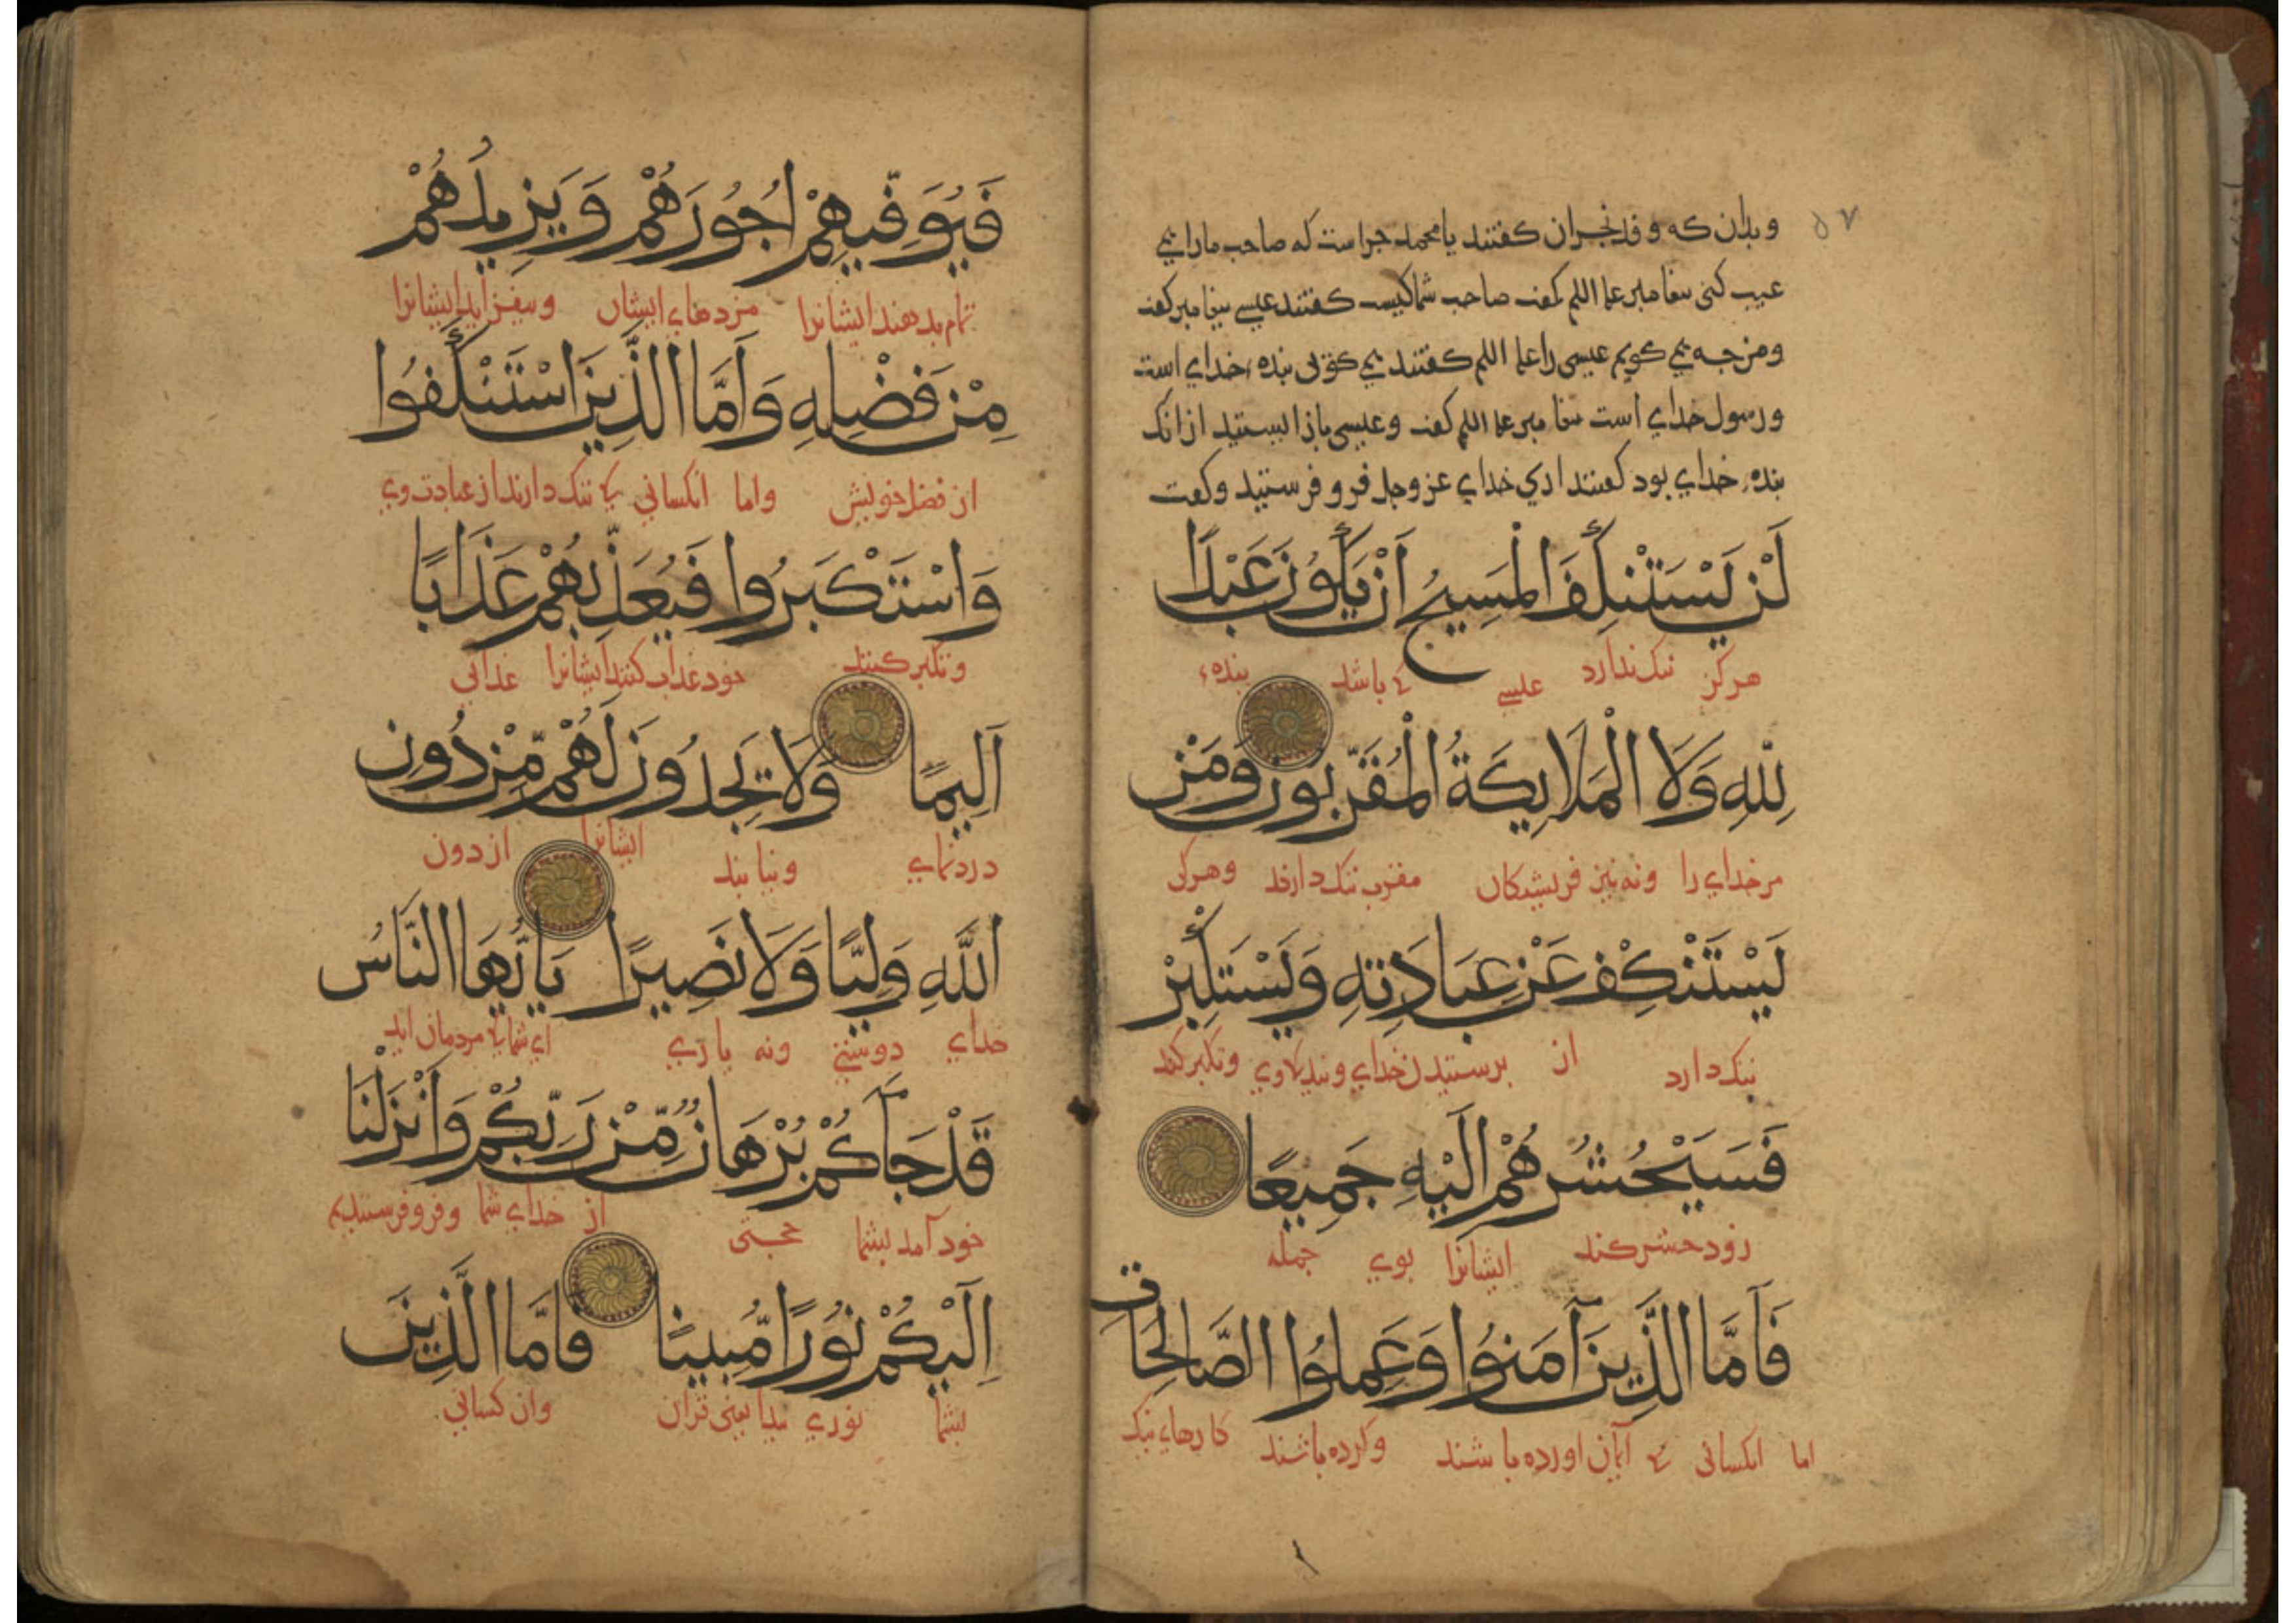 ۵۷
و بدان که وفد نجران کفتند یا محمد جراست که صاحب مارا می
عیب کنی بیغامبر علیه السلم کفت صاحب شما کیست کفتند عیسی بیغامبر کفت
و من جه می کویم عیسی را علیه السلم کفتند می کوئی بنده خدای است
و رسول خدای است بیغامبر علیه السلم کفت و عیسی باز ایستید از انک
بنده خدای بود کفتند اری خدای عز وجل فرو فرستید و کفت
لَنْ يَسْتَنْكِفَ الْمَسِيحُ اَنْ يَكُونَ عَبْدًا
هرکز ننک ندارد عیسی که باشد بنده
لِلّٰهِ وَلَا الْمَلَايِكَةُ الْمُقَرَّبُونَ وَمَنْ
مر خدای را ونه نیز فریشتکان مقرب ننک دارند وهرکی
يَسْتَنْكِفْ عَنْ عِبَادَتِهِ وَيَسْتَكْبِرْ
ننک دارد از برستیدن خدای و بندکی وی وتکبر کند
فَسَيَحْشُرُهُمْ اِلَيْهِ جَمِيعًا
زود حشر کند ایشانرا بوی جمله
فَاَمَّا الَّذِينَ آمَنُوا وَعَمِلُوا الصَّالِحَاتِ
اما انکسانی که ایمان اورده باشند وکرده باشند کارهاء نیک
فَيُوَفِّيهِمْ اُجُورَهُمْ وَيَزِيدُهُمْ
تمام بدهند ایشانرا مزدهاي ایشان وبیفزاید ایشانرا
مِنْ فَضْلِهِ وَاَمَّا الَّذِينَ اسْتَنْكَفُوا
از فضل خویش واما انکسانی که ننک دارند از عبادت وي
وَاسْتَكْبَرُوا فَيُعَذِّبُهُمْ عَذَابًا
وتکبر کنند خود عذاب کند ایشانرا عذابی
اَلِيمًا وَلَا يَجِدُونَ لَهُمْ مِّنْ دُونِ
دردناي ونیابند ایشانرا از دون
اللّٰهِ وَلِيًّا وَلَا نَصِيرًا يَا اَيُّهَا النَّاسُ
خداي دوستی ونه یاري اي شما که مردمان اید
قَدْ جَآكُمْ بُرْهَانٌ مِّنْ رَبِّكُمْ وَاَنْزَلْنَا
خود آمد بشما حجتی از خداي شما وفرو فرستدیم
اِلَيْكُمْ نُورًا مُّبِينًا فَاَمَّا الَّذِينَ
بشما نوري بیدا یعنی قران وان کسانی